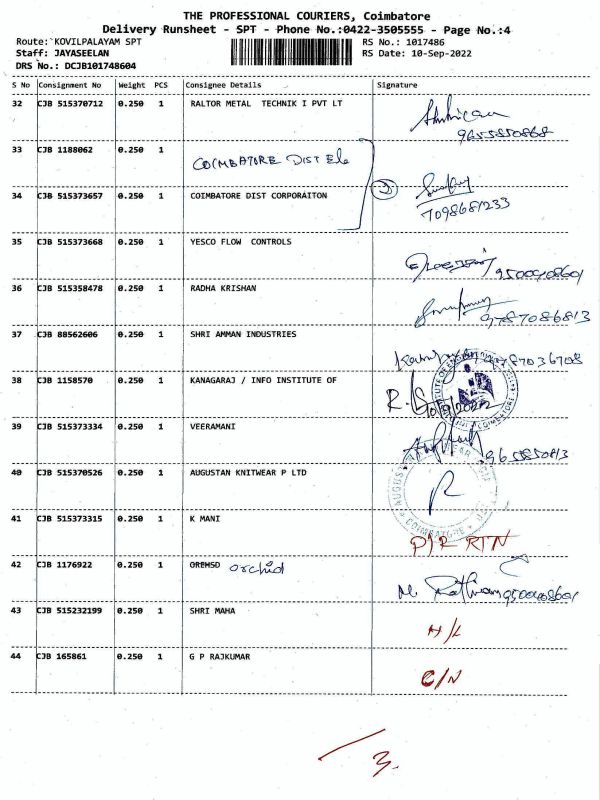 THE PROFESSIONAL COURIERS, Coimbatore
Delivery Runsheet - SPT - Phone No.:0422-3505555 - Page No.:4
Route: KOVILPALAYAM SPT RS No.: 1017486
Staff: JAYASEELAN RS Date: 10-Sep-2022
DRS No.: DCJB101748604
S No Consignment No Weight PCS Consignee Details Signature
32 CJB 515370712 0.250 1 RALTOR METAL TECHNIK I PVT LT
9655850868
33 CJB 1188062 0.250 1 COIMBATORE DIST Ele
34 CJB 515373657 0.250 1 COIMBATORE DIST CORPORAITON
7098681233
35 CJB 515373668 0.250 1 YESCO FLOW CONTROLS
9500408601
36 CJB 515358478 0.250 1 RADHA KRISHAN
9787086813
37 CJB 88562606 0.250 1 SHRI AMMAN INDUSTRIES
9787036708
38 CJB 1158570 0.250 1 KANAGARAJ / INFO INSTITUTE OF
10/9/2022
39 CJB 515373334 0.250 1 VEERAMANI
40 CJB 515370526 0.250 1 AUGUSTAN KNITWEAR P LTD
41 CJB 515373315 0.250 1 K MANI
P/R RTN
42 CJB 1176922 0.250 1 OREMSD orchid
9500408601
43 CJB 515232199 0.250 1 SHRI MAHA
H/L
44 CJB 165861 0.250 1 G P RAJKUMAR
C/N
3.